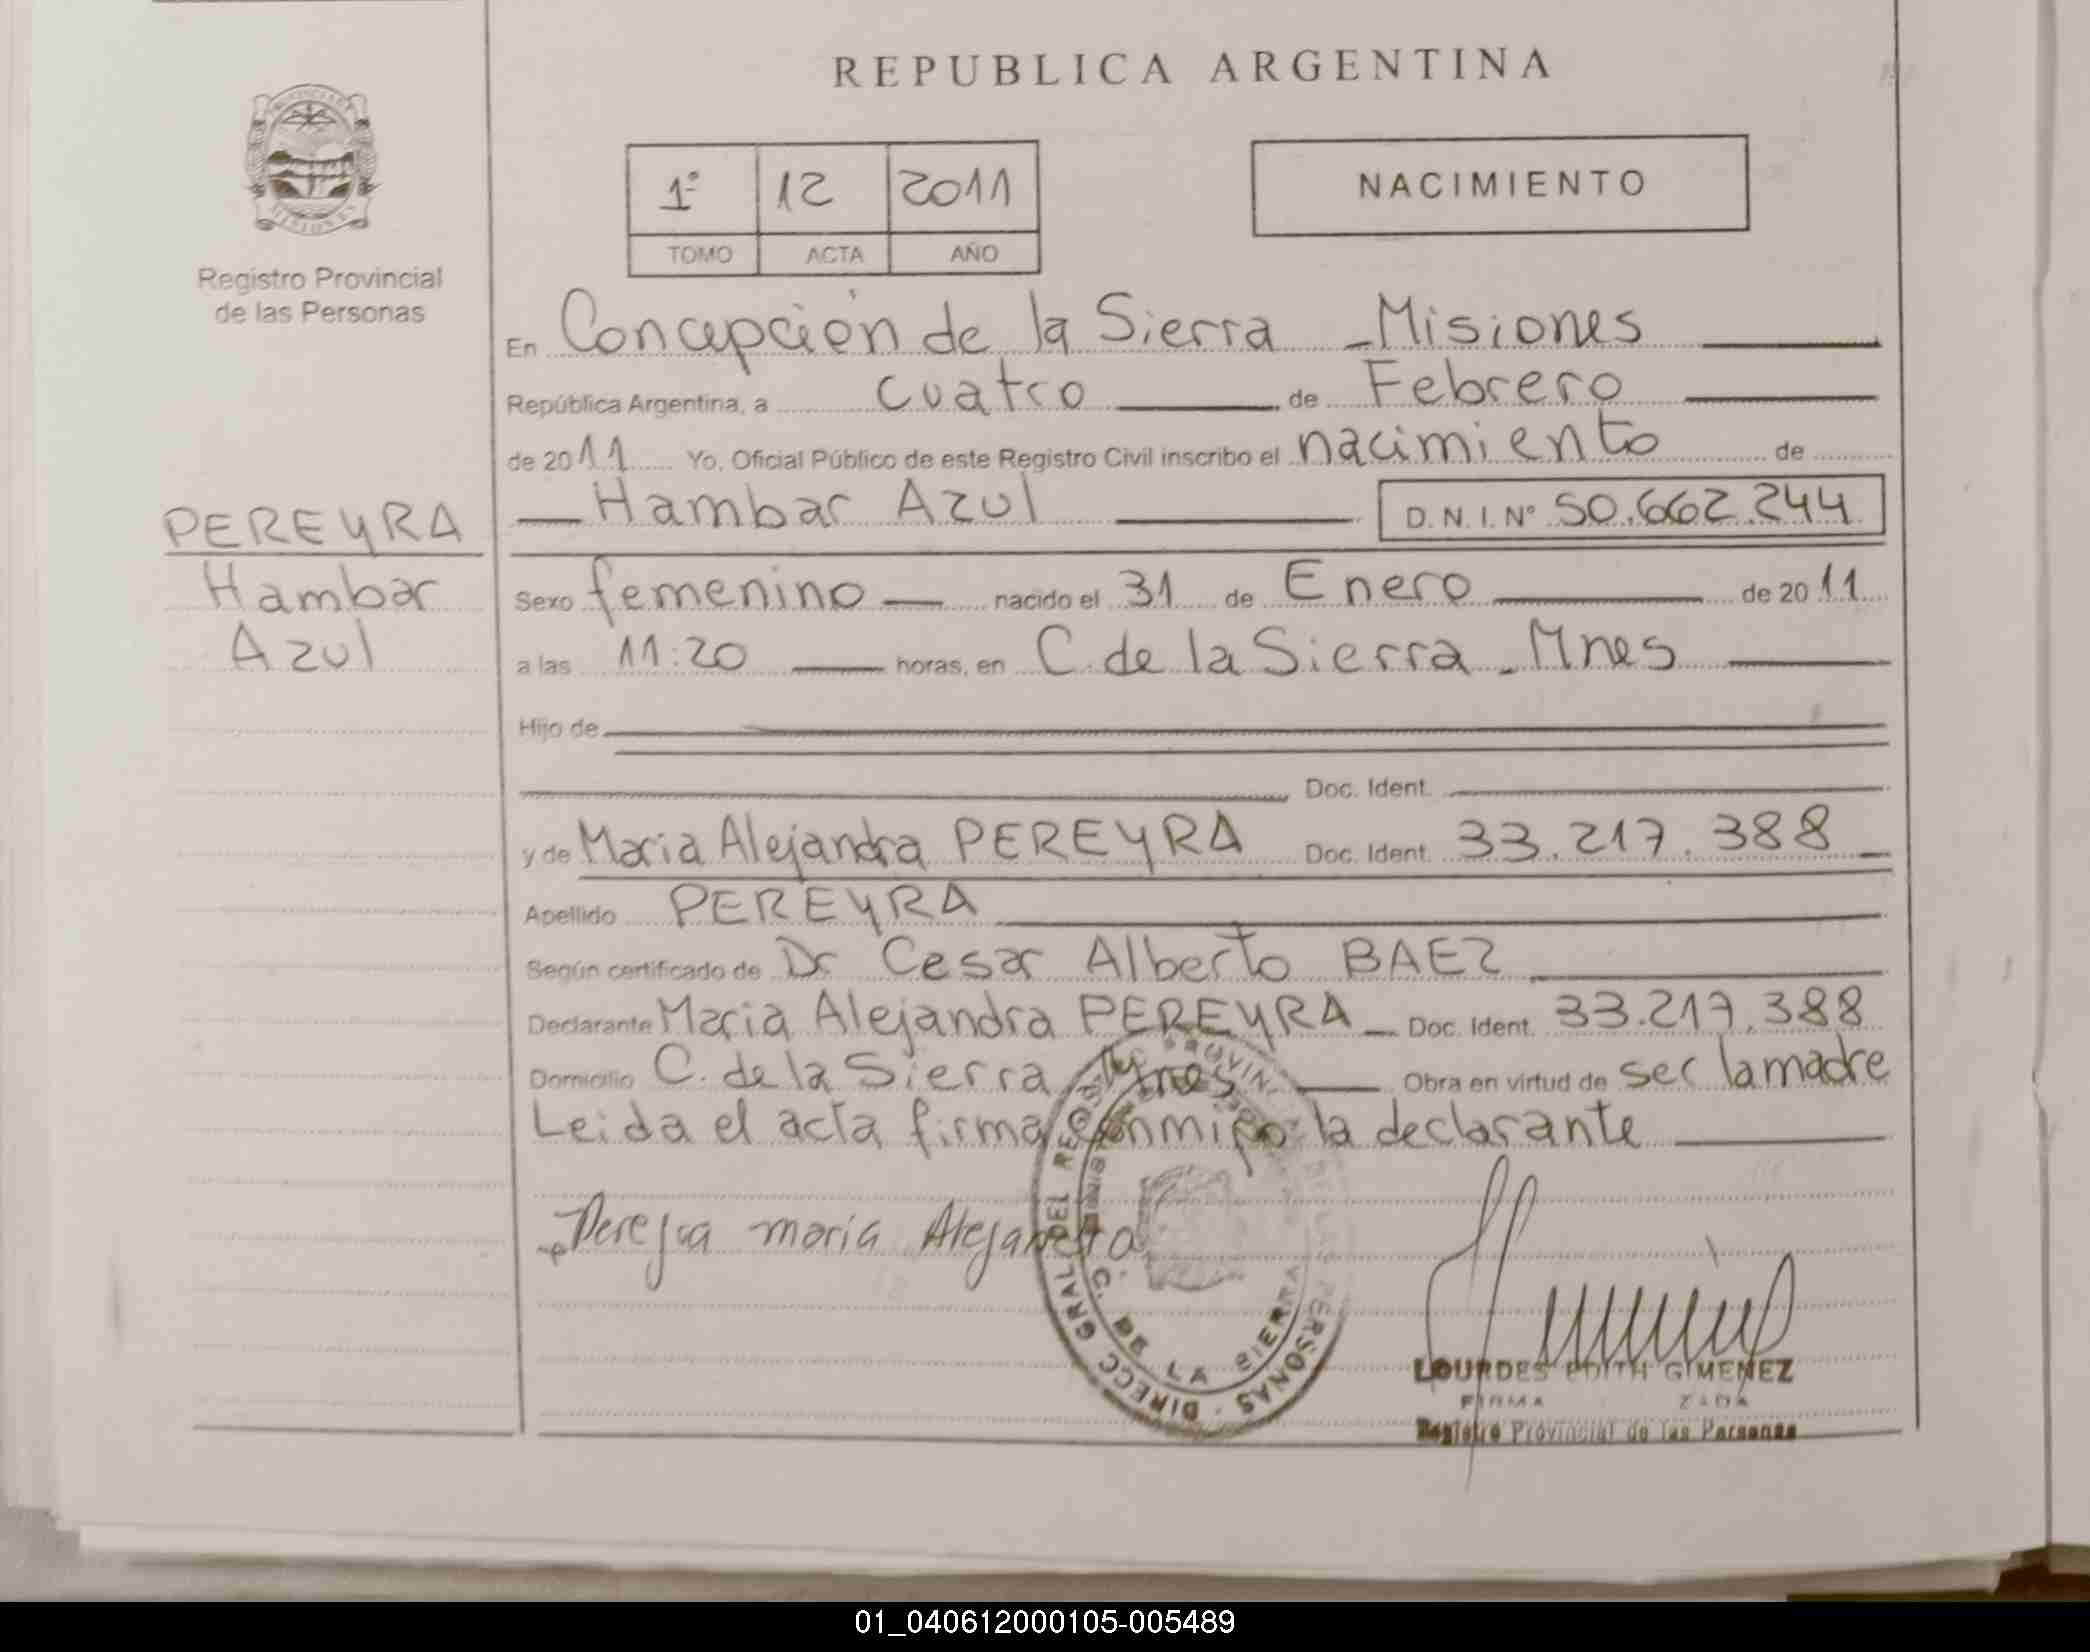 REPUBLICA ARGENTINA
1º 12 2011
TOMO ACTA AÑO
NACIMIENTO
Registro Provincial
de las Personas
PEREYRA
Hambar
Azul
En Concepción de la Sierra - Misiones
República Argentina, a cuatro de Febrero
de 2011 Yo, Oficial Público de este Registro Civil inscribo el nacimiento de
Hambar Azul D.N.I. Nº 50.662.244
Sexo femenino nacido el 31 de Enero de 2011
a las 11:20 horas, en C. de la Sierra - Mnes
Hijo de
Doc. Ident.
y de Maria Alejandra PEREYRA Doc. Ident. 33.217.388
Apellido PEREYRA
Según certificado de Dr Cesar Alberto BAEZ
Declarante Maria Alejandra PEREYRA - Doc. Ident. 33.217.388
Domicilio C. de la Sierra Mnes Obra en virtud de ser la madre
Leida el acta firma conmigo la declarante
Pereyra maria Alejandra
DIRECC GRAL DEL REG PROVIN PERSONAS
C. DE LA SIERRA
LOURDES EDITH GIMENEZ
FIRMA
Registro Provincial de las Personas
01_040612000105-005489